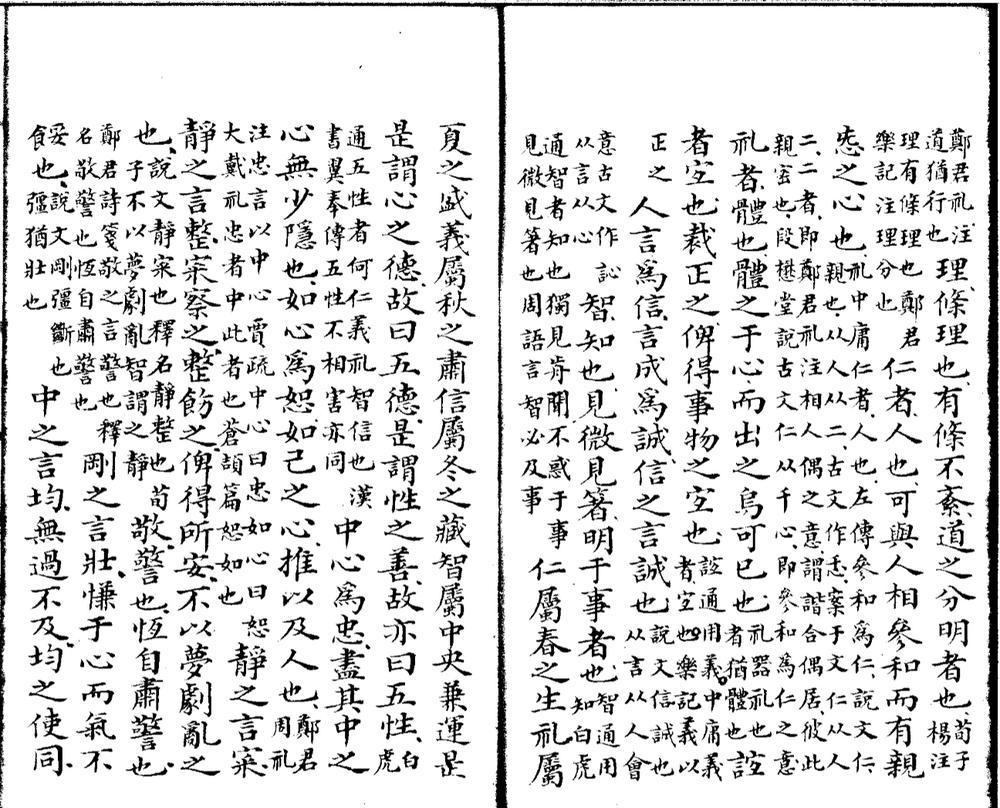 鄭君礼注道猶行也理條理也有條不紊道之分明者也荀子楊注
理有條理也鄭君樂記注理分也仁者人也可與人相參和而有親
㤅之心也礼中庸仁者人也左傳參和爲仁說文仁親也从人从二古文作忎案于文仁从人
二二者即鄭君礼注相人偶之意謂諧合偶居彼此親密也段懋堂說古文仁从千心即參和爲仁之意
礼者體也體之于心而出之烏可已也礼器礼也者猶體也誼
者宜也裁正之俾得事物之宜也誼通用義中庸義者宜也樂記義以
正之人言爲信言成爲誠信之言誠也說文信誠也从言从人會
意古文作訫从言从心智知也見微見箸明于事者也智通用知白虎
通智者知也獨見前聞不惑于事見微見箸也周語言智必及事仁屬春之生礼屬
夏之盛義屬秋之肅信屬冬之藏智屬中央兼運是
是謂心之德故曰五德是謂性之善故亦曰五性白虎
通五性者何仁義礼智信也漢書翼奉傳五性不相害亦同中心爲忠盡其中之
心無少隱也如心爲恕如己之心推以及人也鄭君周礼
注忠言以中心賈疏中心曰忠如心曰恕大戴礼忠者中此者也蒼頡篇恕如也靜之言寀
靜之言整寀察之整飭之俾得所安不以夢劇亂之
也說文靜寀也釋名靜整也荀子不以夢劇亂智謂之靜敬警也恆自肅警也
鄭君詩箋敬之言警也釋名敬警也恆自肅警也剛之言壯慊于心而氣不
餒也說文剛彊斷也彊猶壯也中之言均無過不及均之使同